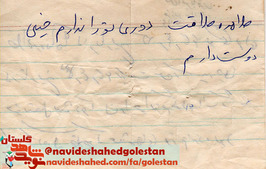 طاقت دوری تو را ندارم خیلی
دوست دارم
گلستان
نوید شاهد
@navideshahedgolestan
navideshahed.com/fa/golestan